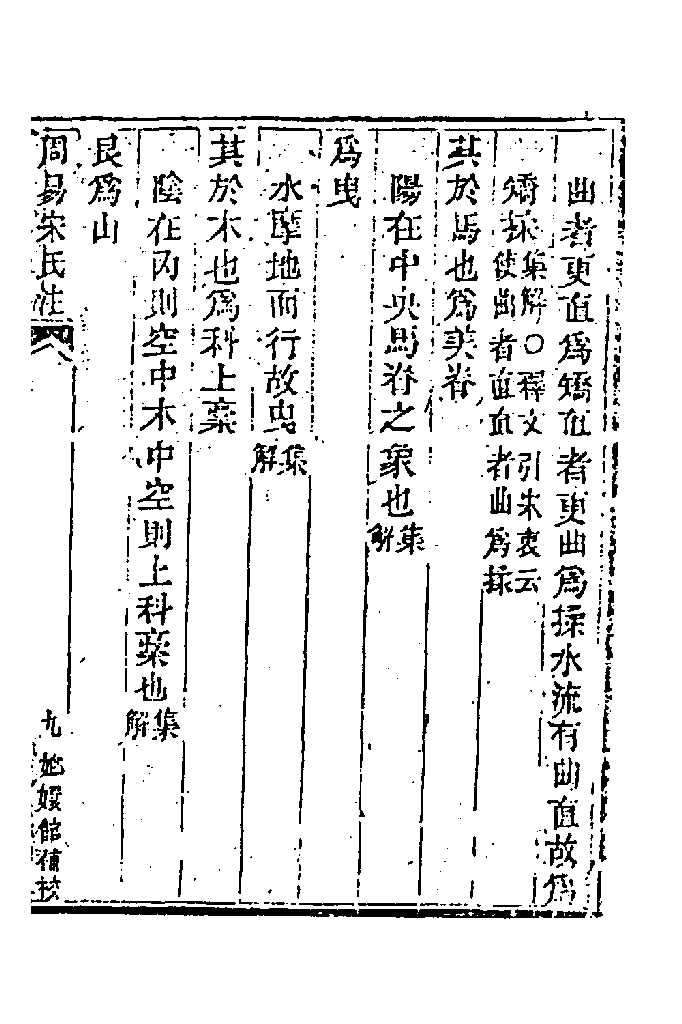 曲者更直爲矯直者更曲爲揉水流有曲直故爲
矯揉集解○釋文引宋衷云使曲者直直者曲爲揉
其於馬也爲美脊
陽在中央馬脊之象也集解
爲曳
水摩地而行故曳集解
其於木也爲科上槀
陰在內則空中木中空則上科槀也集解
艮爲山
周易宋氏注
九
嫏嬛館補校